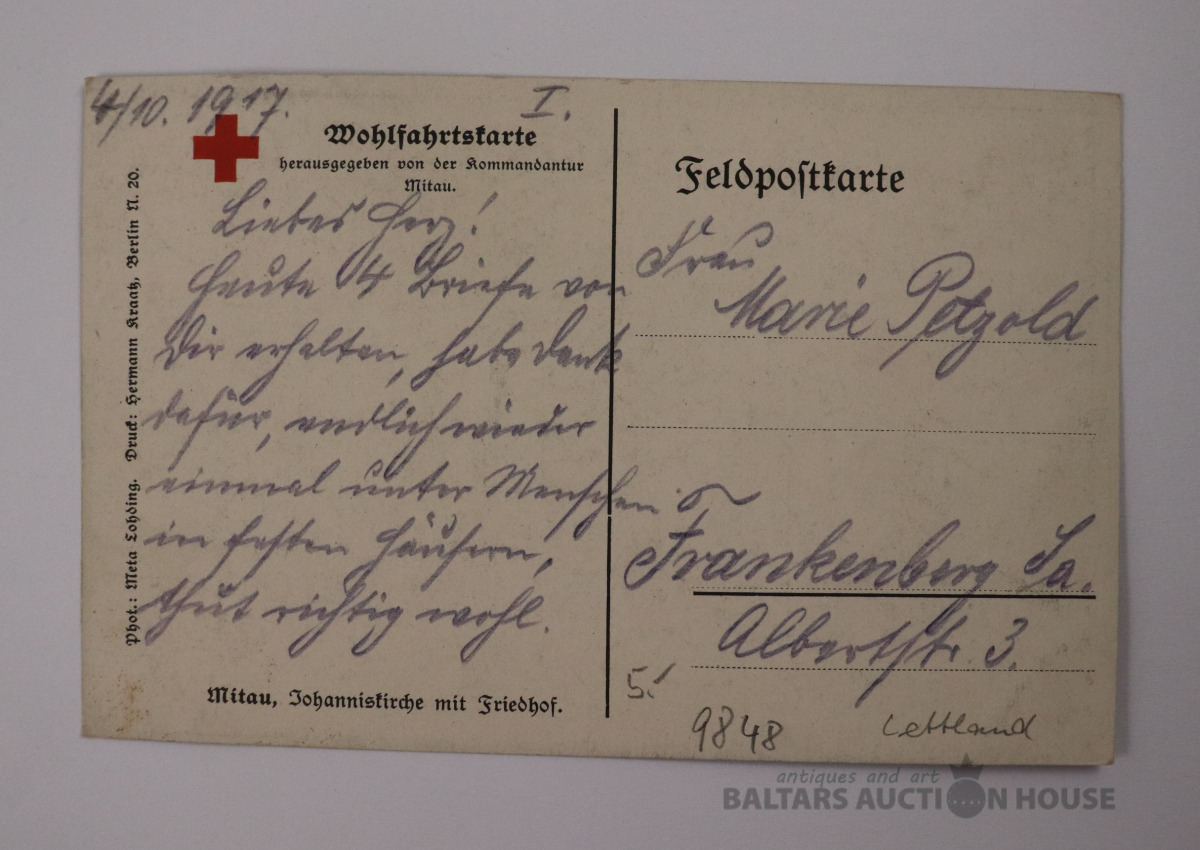 4/10. 1917.
I.
Wohlfahrtskarte
herausgegeben von der Kommandantur
Mitau.
Liebes Herz!
Heute 4 Briefe von
Dir erhalten, habe Dank
dafür, endlich wieder
einmal unter Menschen
in festen Häusern,
thut richtig wohl.
Mitau, Johanniskirche mit Friedhof.
Phot.: Meta Lohding. Druck: Hermann Kraatz, Berlin N. 20.
Feldpostkarte
Frau
Marie Petzold
Frankenberg Sa.
Albertstr. 3.
5.
9848
Lettland
antiques and art
BALTARS AUCTION HOUSE